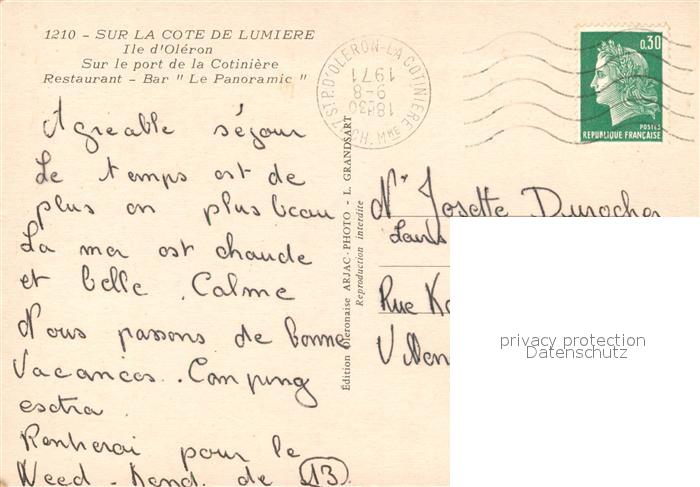 1210 - SUR LA COTE DE LUMIERE
Ile d'Oléron
Sur le port de la Cotinière
Restaurant - Bar " Le Panoramic "
Agréable séjour
Le temps est de
plus en plus beau
La mer est chaude
et belle . Calme
Nous passons de bonne
Vacances . Camping
esctra
Rentrerai pour le
Weed-Kend de 13
Édition Oléronaise ARJAC-PHOTO - L. GRANDSART
Reproduction interdite
ST P. D'OLERON-LA COTINIERE
CH. MME
18H30
9-8
1971
0,30
POSTES
REPUBLIQUE FRANÇAISE
Josette Durocher
Rue
privacy protection
Datenschutz